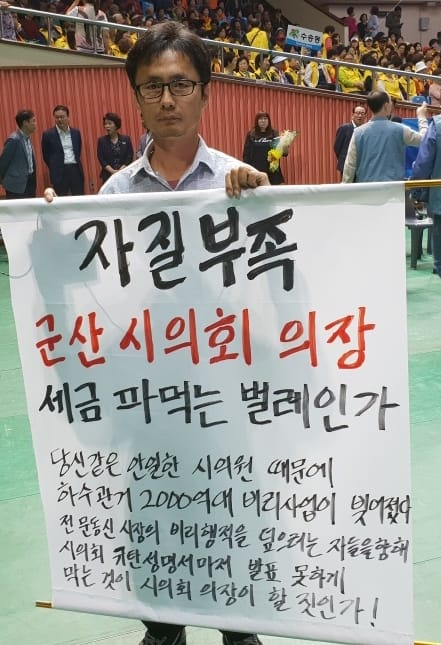 수송동
자질부족
군산시의회 의장
세금 파먹는 벌레인가
당신같은 안일한 시의원 때문에
하수관거 2000억대 비리사업이 빚어졌다
전 문동신 시장의 비리행적을 덮으려는 자들을 향해
시의회 규탄성명서마저 발표 못하게
막는 것이 시의회 의장이 할 짓인가!